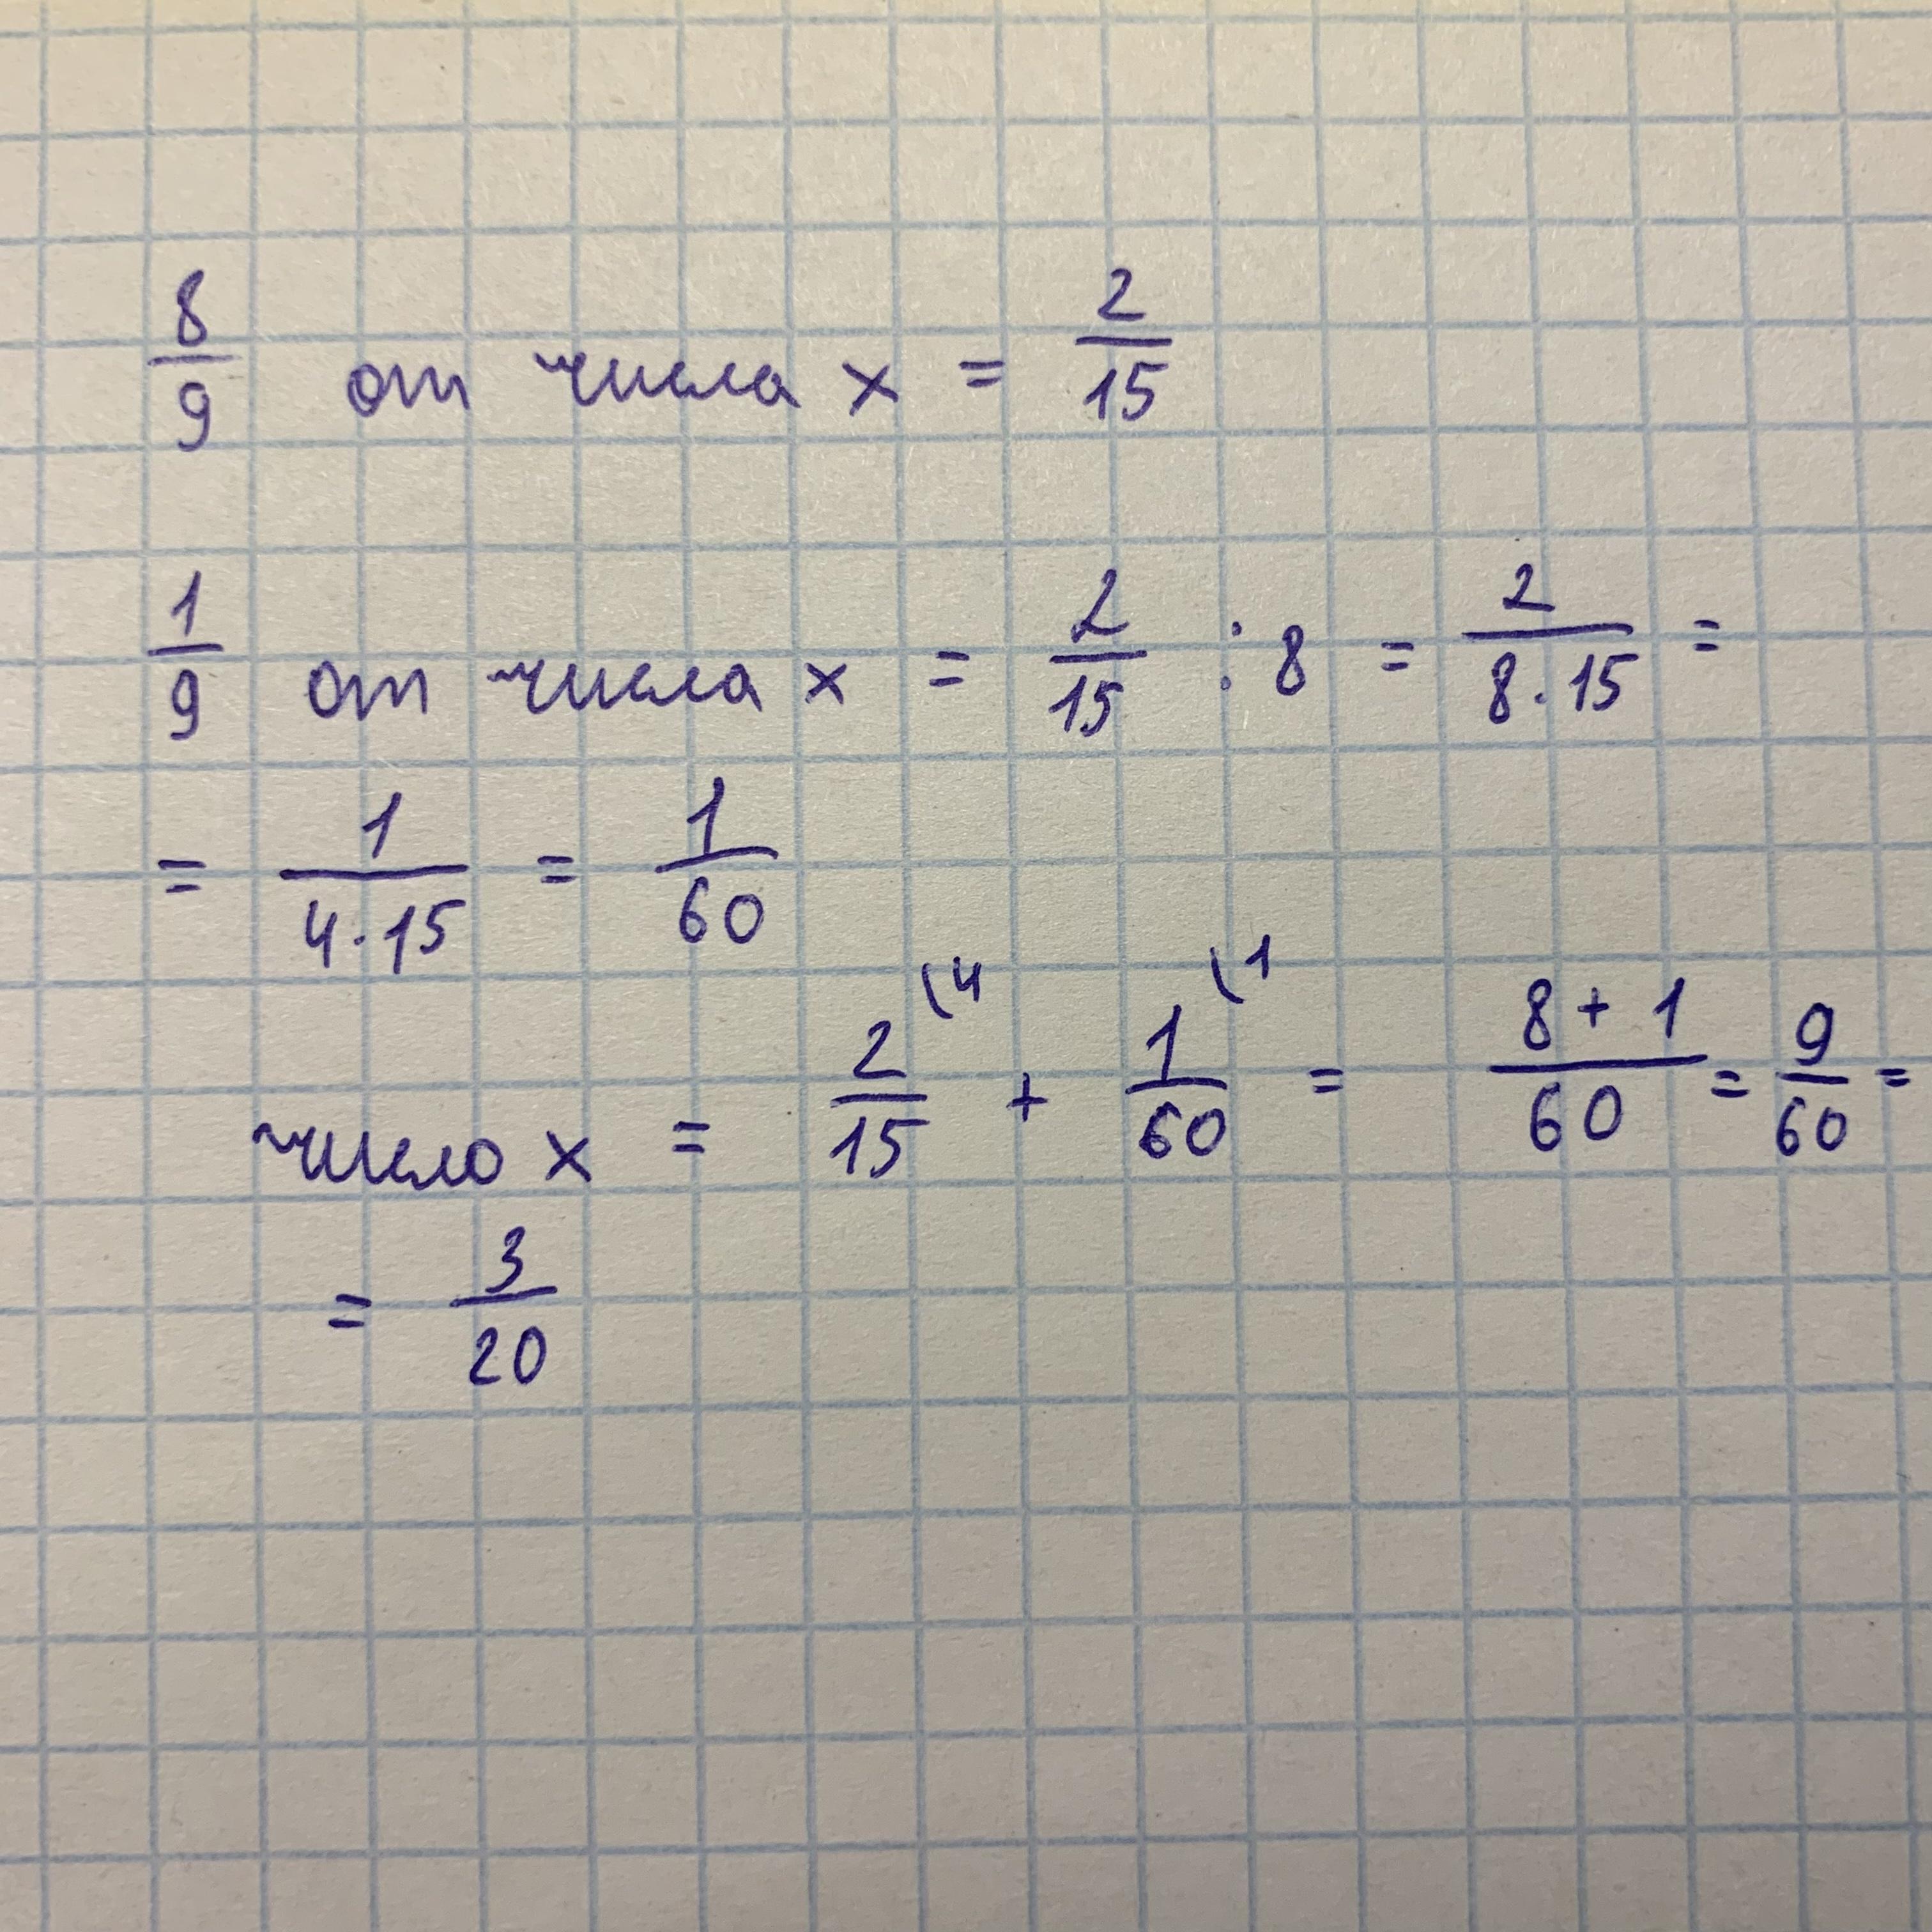 8/9 от числа x = 2/15
1/9 от числа x = 2/15 : 8 = 2/(8·15) =
= 1/(4·15) = 1/60
число x = 2/15 (4 + 1/60 (1 = (8+1)/60 = 9/60 =
= 3/20